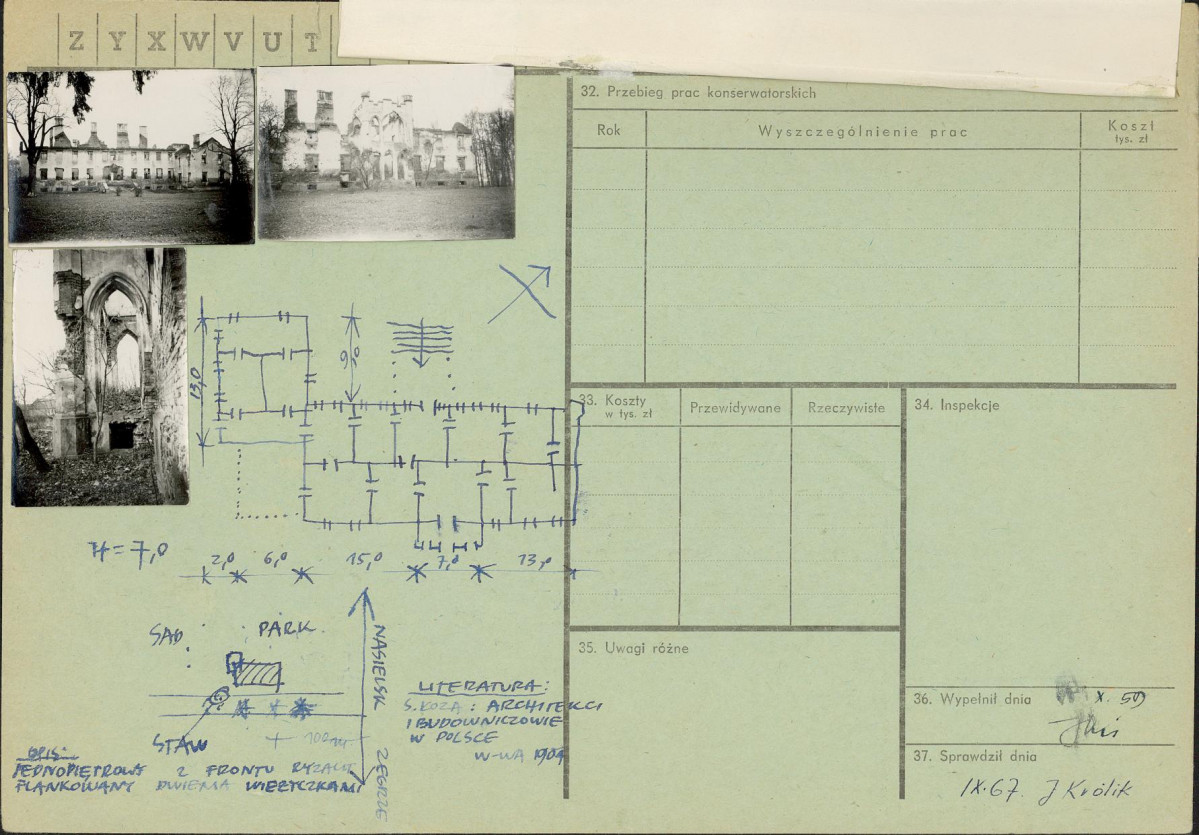 Z Y X W V U T
32. Przebieg prac konserwatorskich
Rok
Wyszczególnienie prac
Koszt
tys. zł
13,0
9,0
33. Koszty
w tys. zł
Przewidywane
Rzeczywiste
34. Inspekcje
H = 7,0
2,0 6,0 15,0 7,0 13,0
SAD
PARK
NASIELSK
ZEGRZE
STAW
100m
LITERATURA:
S. ŁOZA: ARCHITEKCI
I BUDOWNICZOWIE
W POLSCE
W-WA
OPIS:
JEDNOPIĘTROWY Z FRONTU RYZALIT
FLANKOWANY DWIEMA WIEŻYCZKAMI
35. Uwagi różne
36. Wypełnił dnia
X. 59
37. Sprawdził dnia
IX.67. J Królik